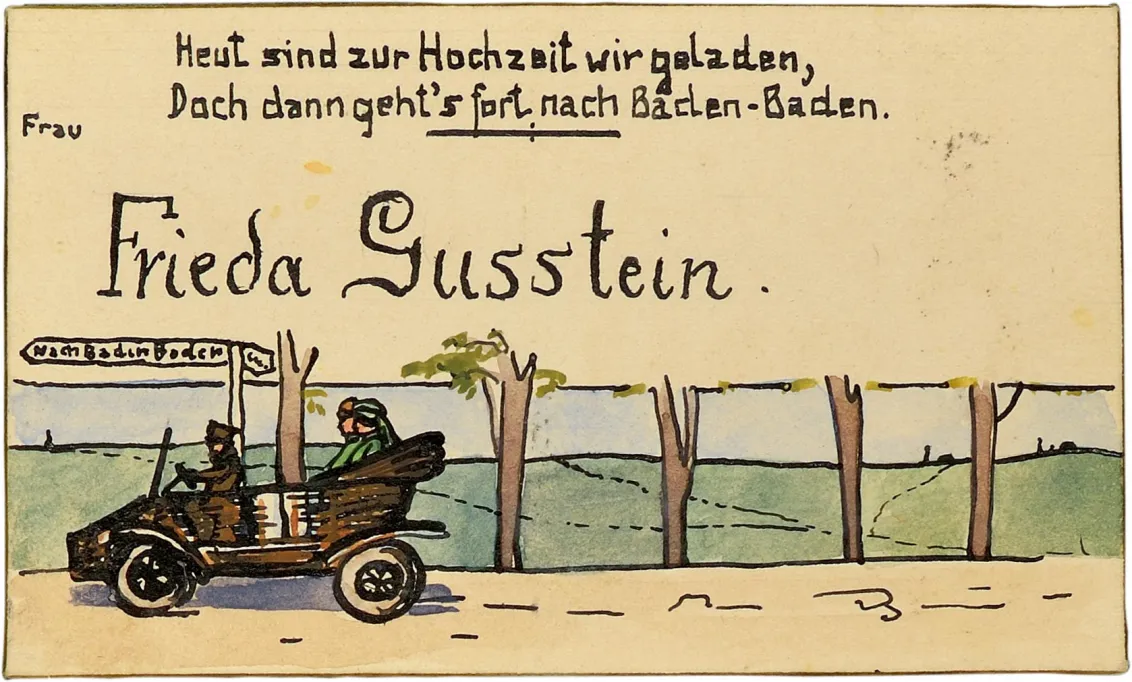 Heut sind zur Hochzeit wir geladen,
Doch dann geht's fort nach Baden-Baden.
Frau
Frieda Gusstein.
Nach Baden Baden